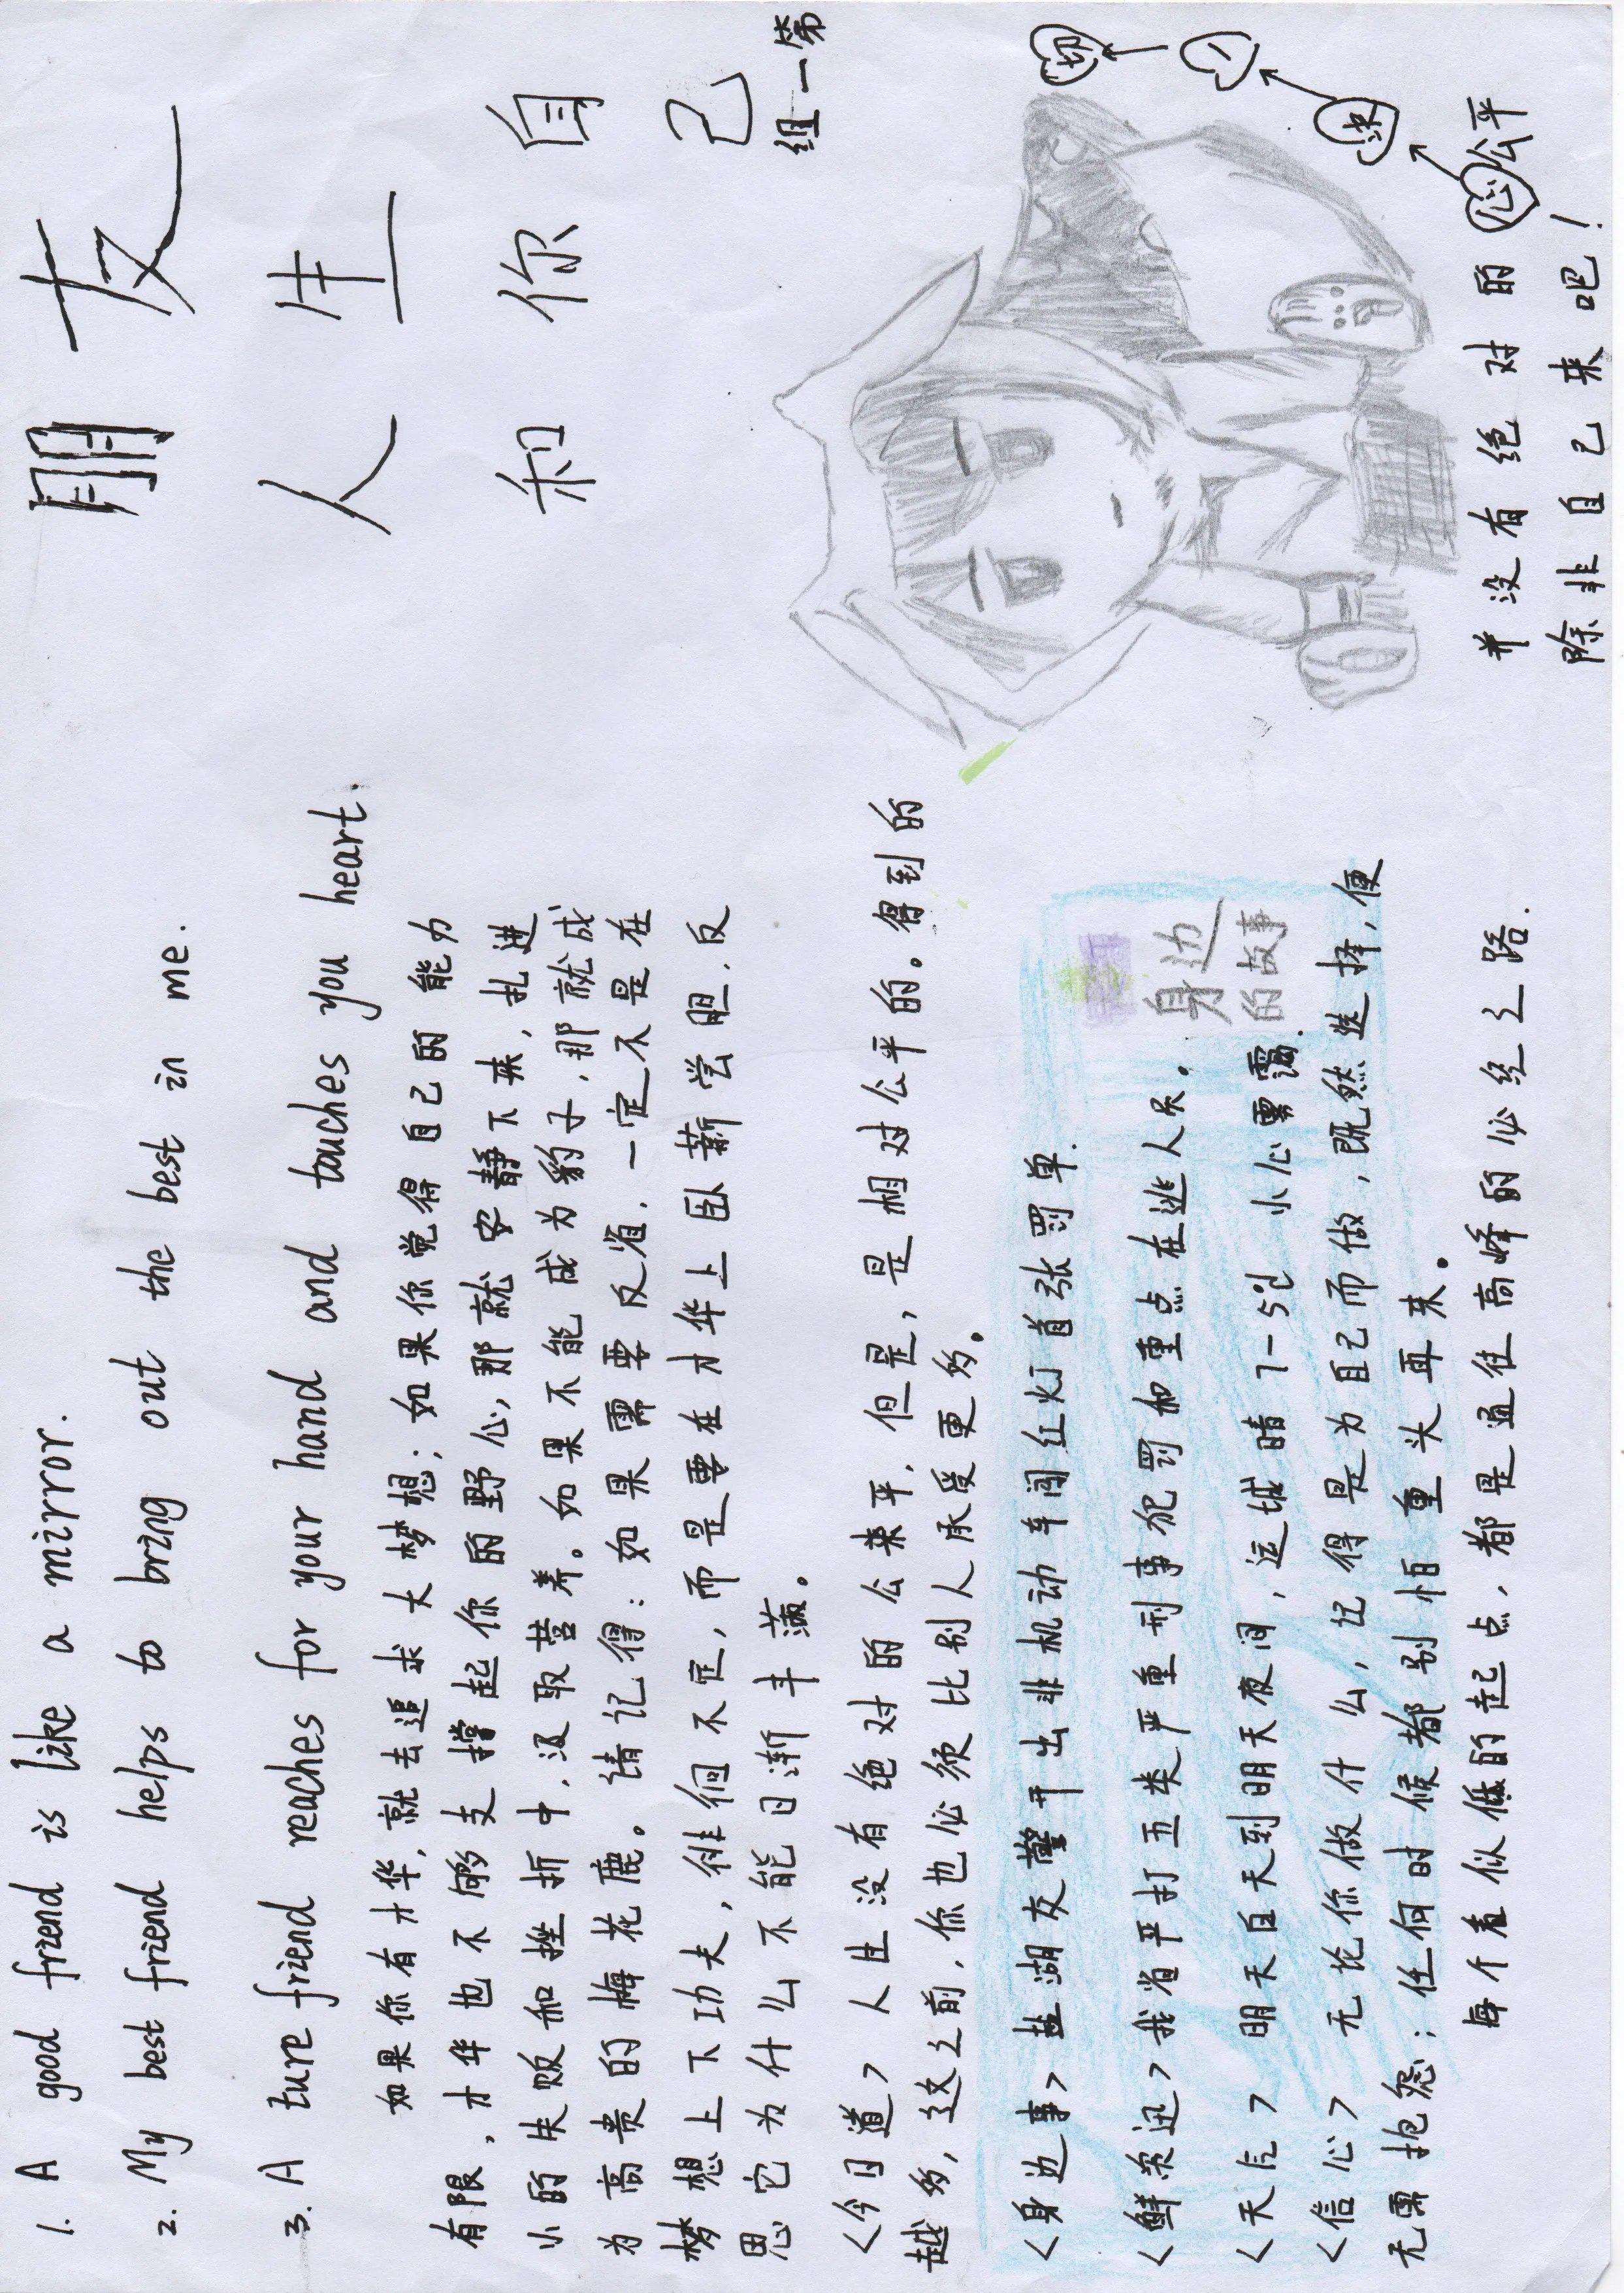 1. A good friend is like a mirror.
2. My best friend helps to bring out the best in me.
3. A ture friend reaches for your hand and touches you heart.
如果你有才华，就去追求大梦想；如果你觉得自己的能力
有限，才华也不够支撑起你的野心，那就安静下来，扎进
小的失败和挫折中，汲取营养。如果不能成为豹子，那就成
为高贵的梅花鹿。请记得：如果需要反省，一定不是在
梦想上下功夫，徘徊不定，而是要在才华上卧薪尝胆，反
思它为什么不能日渐丰满。
<今日道>人生没有绝对的公平，但是，是相对公平的。得到的
越多，这之前，你也必须比别人承受更多。
<身边事>盐湖交警开出非机动车闯红灯首张罚单.
<鲜资迅>我省严打五类严重刑事犯罚和重点在逃人员。
<天气>明天白天到明天夜间，运城晴7-5℃小心雾霭.
<信心>无论你做什么，记得是为自己而做，既然选择，便
无需抱怨；任何时候都别怕重头再来。
每个看似低的起点，都是通往高峰的必经之路.
身边
的故事
朋友
人生
和你自己
第一组
并没有绝对的公平
除非自己来吧！
心
决
一
切